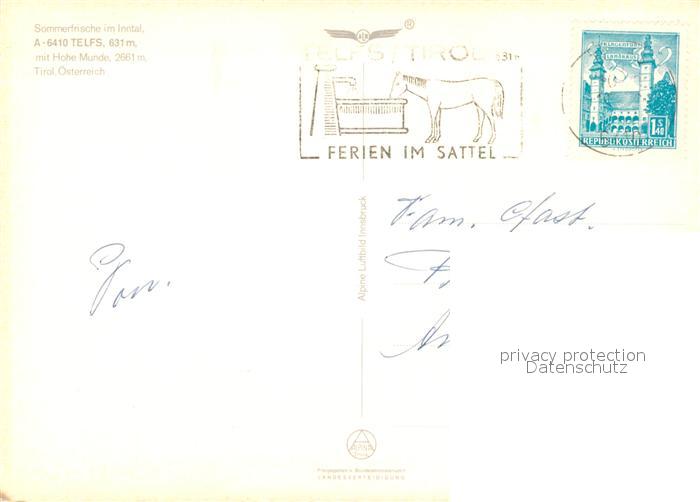 Sommerfrische im Inntal,
A-6410 TELFS, 631 m,
mit Hohe Munde, 2661 m,
Tirol, Österreich
®
TELFS/TIROL 631m
FERIEN IM SATTEL
KLAGENFURT
LANDHAUS
1 S 40
REPUBLIK ÖSTERREICH
Alpine Luftbild Innsbruck
Fam.
privacy protection
Datenschutz
ALPINE
Freigegeben v. Bundesministerium f.
LANDESVERTEIDIGUNG